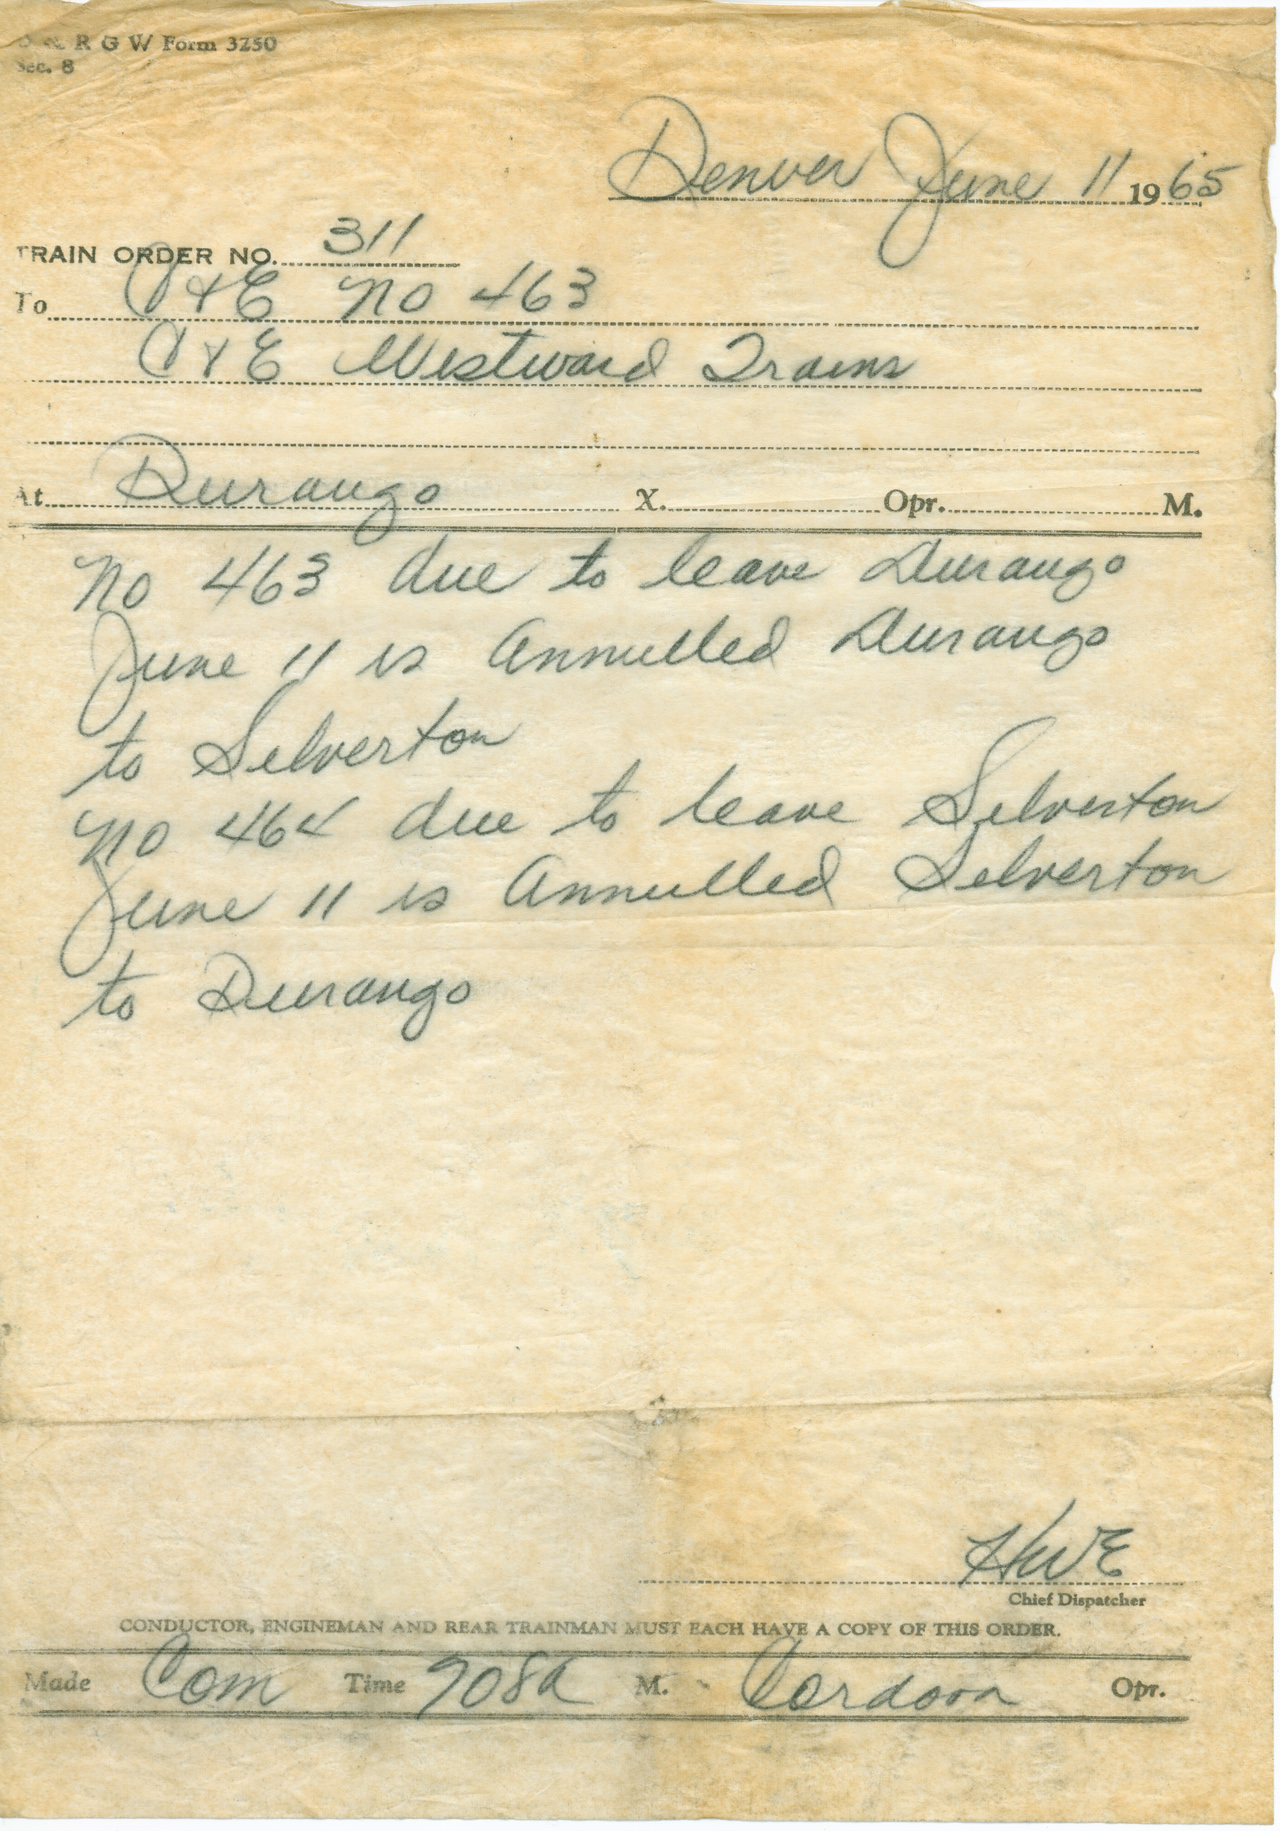 D & R G W Form 3250
Sec. 8
Denver June 11 1965
TRAIN ORDER NO. 311
To C & E No 463
C & E Westward Trains
At Durango X. Opr. M.
No 463 due to leave Durango
June 11 is Annulled Durango
to Silverton
No 464 due to leave Silverton
June 11 is Annulled Silverton
to Durango
HWE
Chief Dispatcher
CONDUCTOR, ENGINEMAN AND REAR TRAINMAN MUST EACH HAVE A COPY OF THIS ORDER.
Made Com Time 908a M. Cordova Opr.